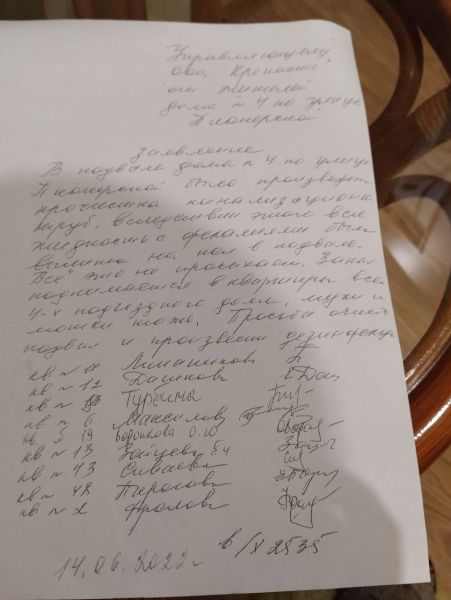 Управляющему
ООО "Крепость"
от жителей
дома № 4 по улице
Пионерской
Заявление
В подвале дома № 4 по улице
Пионерской была произведена
прочистка канализационн.
труб, вследствии этого вся
жидкость с фекалиями была
вылита на пол в подвале.
Всё это не просыхает. Запах
поднимается в квартиры всего
4-х подъездного дома, мухи и
мошки тоже. Просьба очистить
подвал и произвести дезинфекц
кв №
кв № 12 Дашкова
кв № Турбина
кв № 6 Максимов
кв. № 19 Воронкова О.Ю
кв № 13 Зайцева
кв № 43 Сиваева
кв № 48
кв № 2 Фролова
14.06.2022г